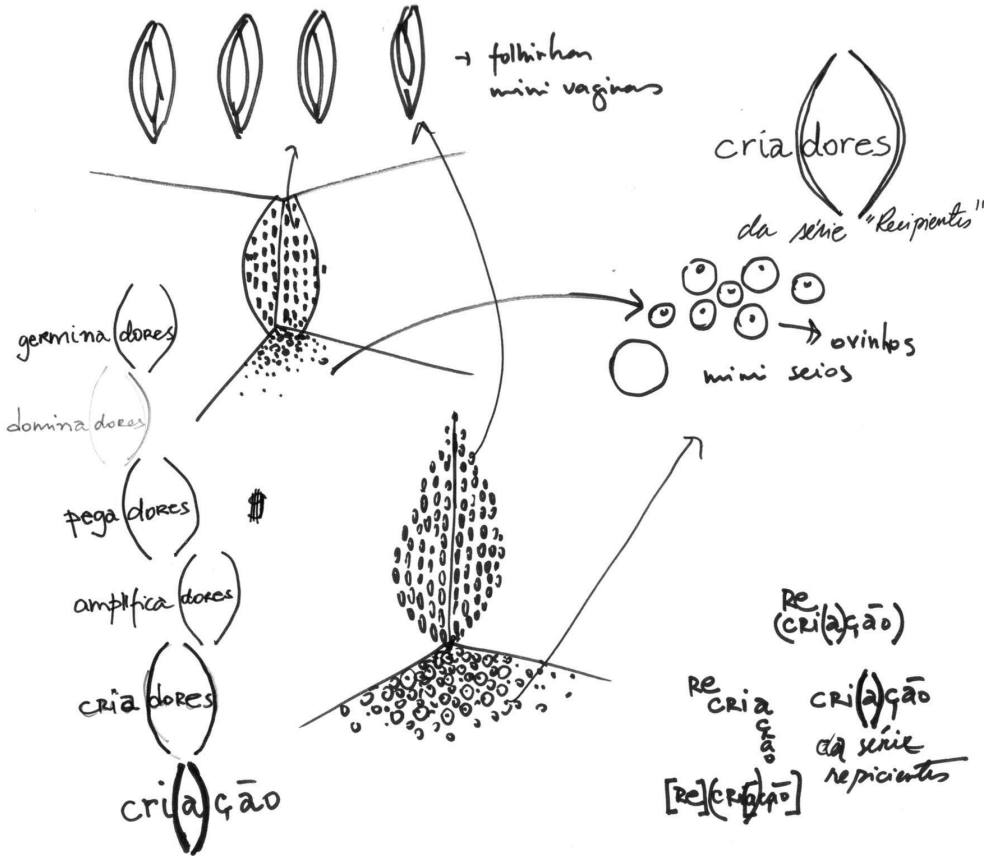 → folhinhas
mini vaginas
cria(dores)
da série "Recipientes"
→ ovinhos
mini seios
germina(dores)
domina(dores)
pega(dores)
amplifica(dores)
cria(dores)
cri(a)ção
Re
(cri(a)ção)
Re
cria
ç
ã
o
cri(a)ção
da série
repicientes
[Re](cri[a)ção]